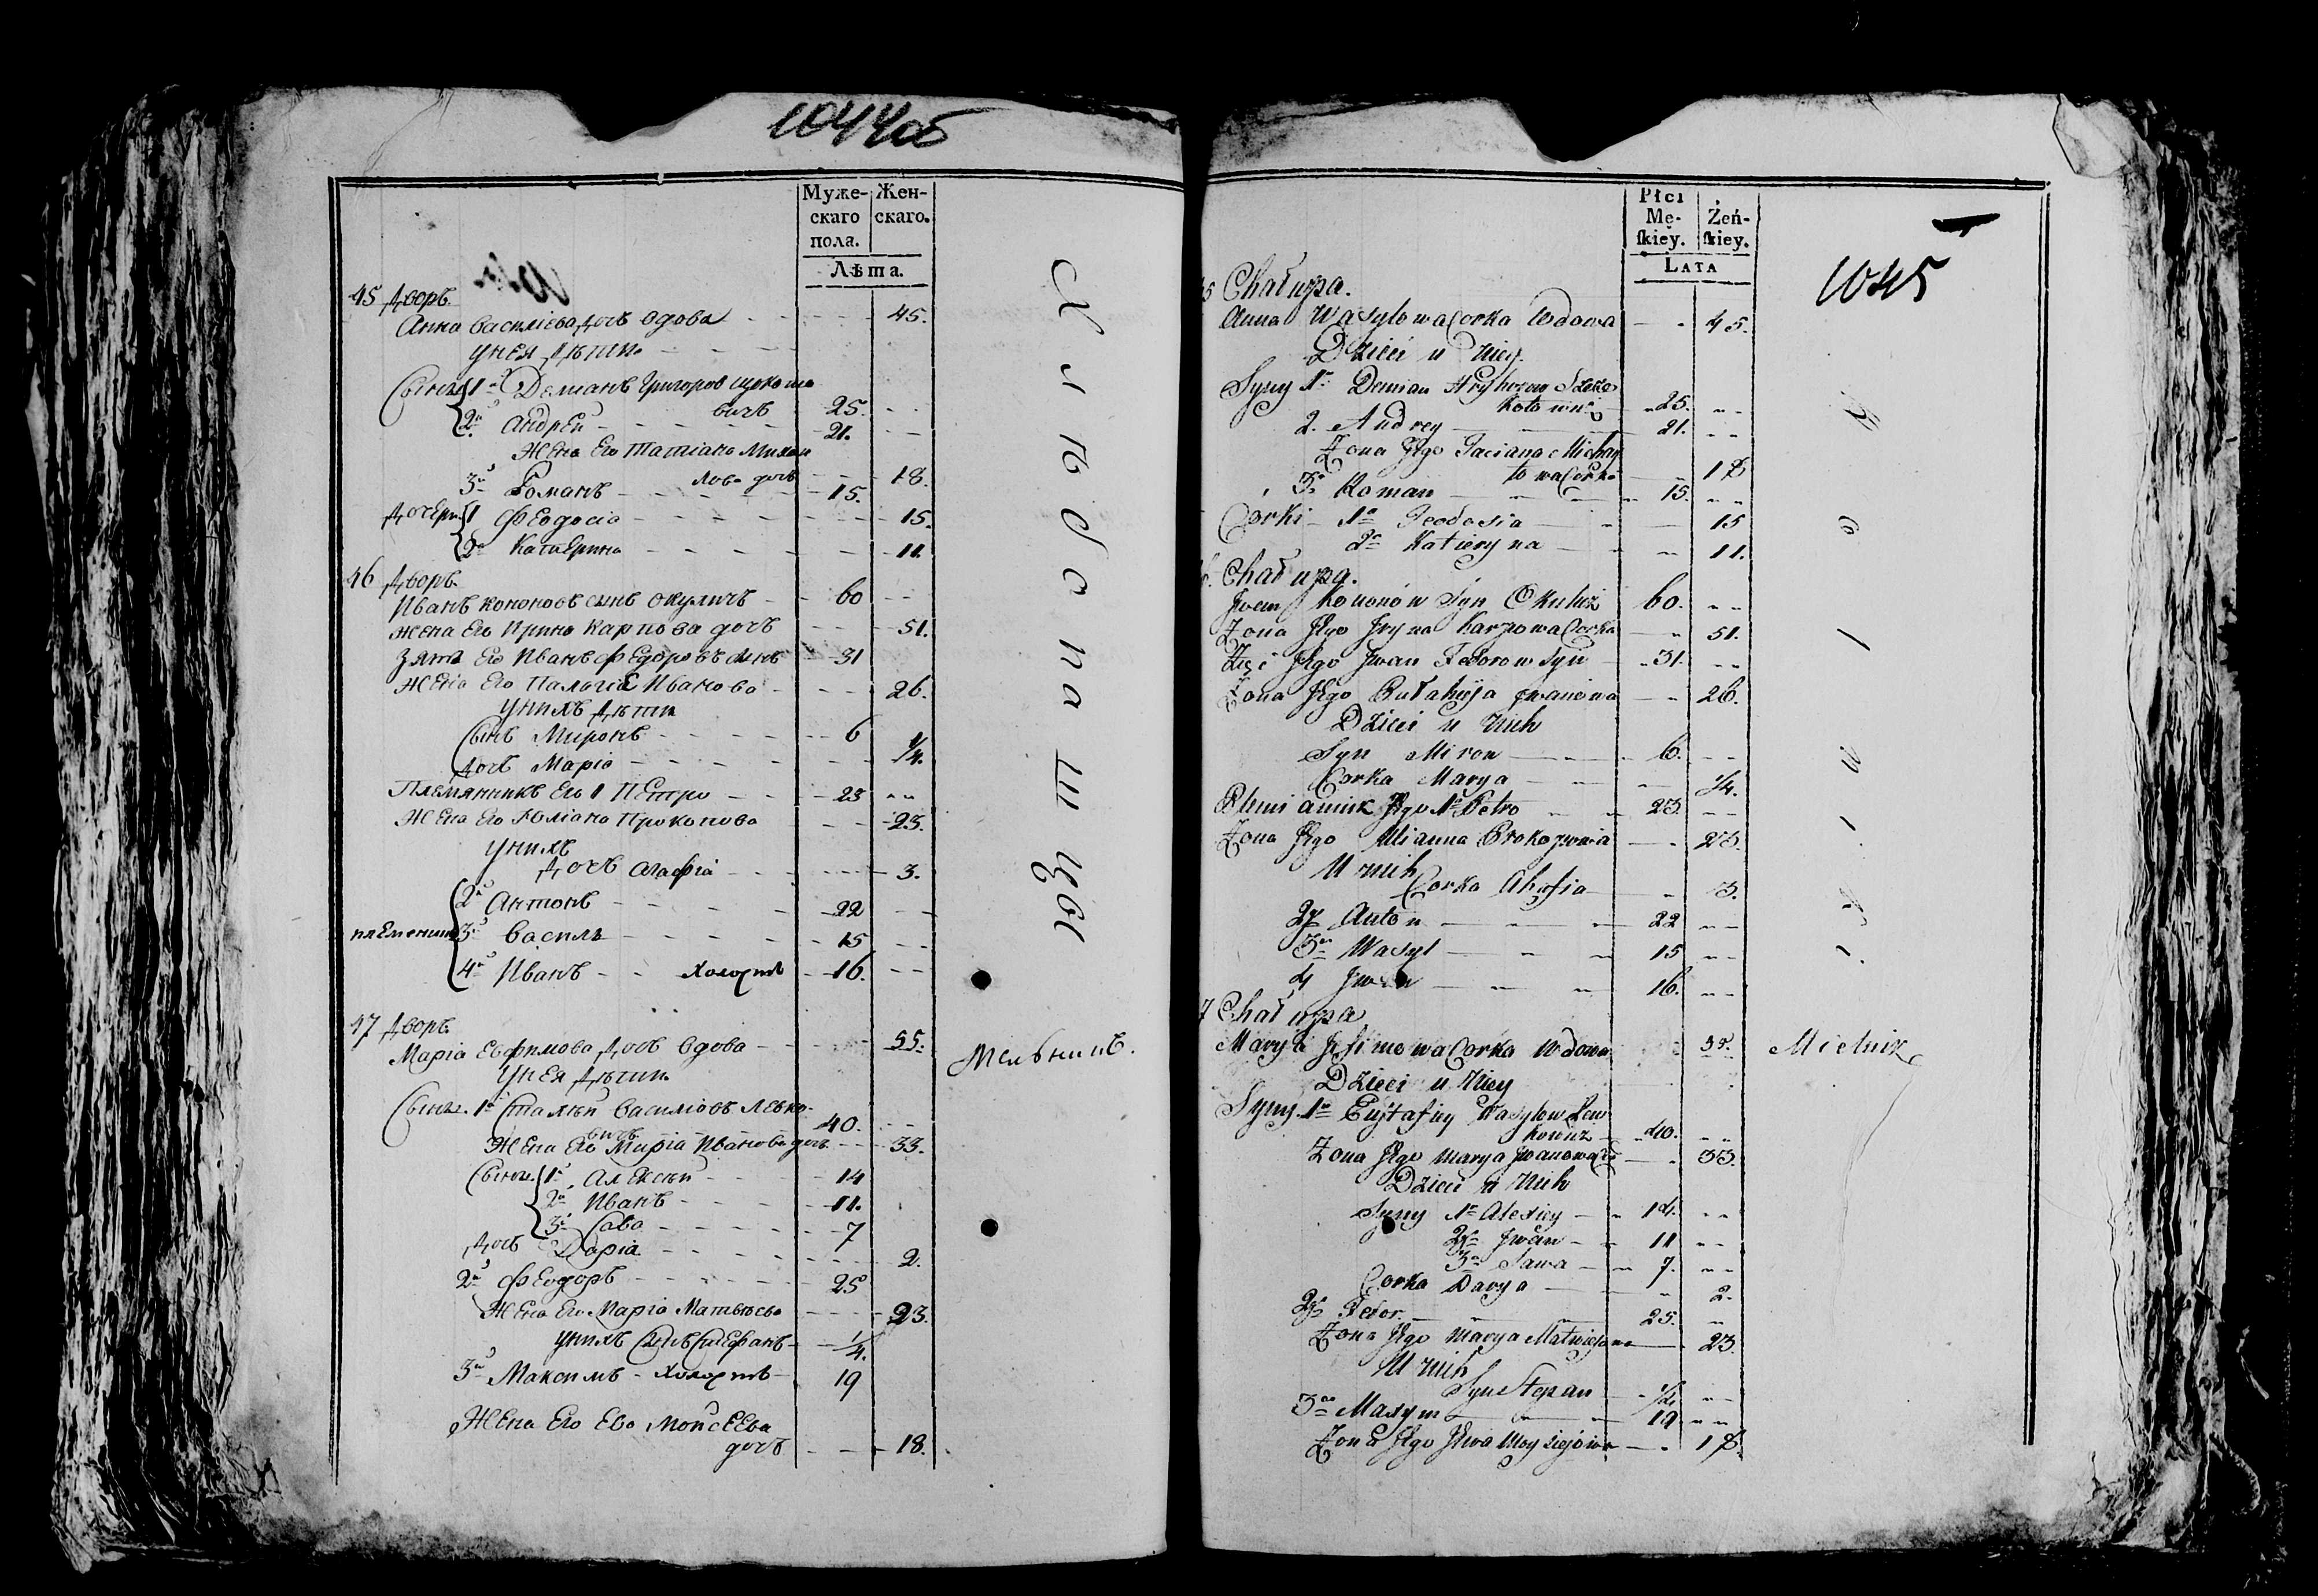 1044об
Муже-
скаго
пола.
Жен-
скаго.
Лѣта.
45 Дворъ.
Анна Василіева дочь вдова 45.
у нея дѣти.
Сыны 1й Демянъ Григоровъ
вичъ 25.
2й Андрей 21.
Жена Его Татіана Михаи
лова дочь 18.
3й Романъ 15.
Дочери 1 Феодосіа 15.
2я Катерина 11.
46 Дворъ.
Иванъ Кононовъ сынъ Окуличъ 60
Жена Его Ирина Карпова дочь 51.
Зять Его Иванъ Федоровъ сынъ 31
Жена Его Палагіа Иванова 26.
у нихъ дѣти
Сынъ Миронъ 6
Дочь Маріа 1/4.
Племянникъ Его 1 Петро 23
Жена Его Юліана Прокопова 23.
у нихъ
Дочь Агафіа 3.
2й Антонъ 22
племенники 3й Василь 15
4й Иванъ Холостъ 16.
47 Дворъ.
Маріа Евфимова дочь вдова 55.
у нея дѣти.
Сыны 1й Василіовъ Левко-
вичъ 40.
Жена Его Маріа Иванова дочь 33.
Сыны 1й Алексѣй 14
2й Иванъ 11.
3й Сава 7
Дочь Даріа 2.
2й Феодоръ 25
Жена Его Маріа Матвѣева 23.
у нихъ Сынъ Стефанъ 1/4.
3й Максимъ - Холостъ 19
Жена Его Ева Мойсеева
дочь 18.
Хлѣбопашцы
Мельникъ.
1045
Płci
Mę-
ſkiey.
Żeń-
ſkiey.
LATA
Chałupa.
Anna Wasylowa Corka Wdowa 45.
Dzieci u Niey.
Syny 1. Demian Hryhorow
25.
2. Andrey 21.
Żona Jego Taciana Michay
łowa Corka 18
3. Roman 15.
Corki 1a Teodosia 15
2a Katieryna 11.
Chałupa.
Jwan Kononow Syn Okulicz 60.
Żona Jego Jryna Karpowa Corka 51.
Zięć Jego Jwan Fedorow Syn 31.
Żona Jego Jwanowa 26.
Dzieci u Nich
Syn Miron 6.
Corka Marya 1/4.
Jego 1. Petro 23.
Żona Jego Ulianna Prokopowa 23.
U nich
Corka Ahafia 3.
2y Anton 22
3. Wasyl 15
4 Jwan 16.
7 Chałupa
Marya Jefimowa Corka Wdowa 55.
Dzieci u Niey
Syny 1. Eustafiy Wasylow Lew
kowicz 40.
Żona Jego Marya Jwanowa 33.
Dzieci u Nich
Syny 1. Alexiey 14.
2y Jwan 11
3. Sawa 7.
Corka Darya 2.
2y Fedor 25.
Żona Jego Marya 23.
U nich
Syn Stepan 1/4
3. Maxym 19
Żona Jego Ewa 18.
Rolnicy.
Mielnik